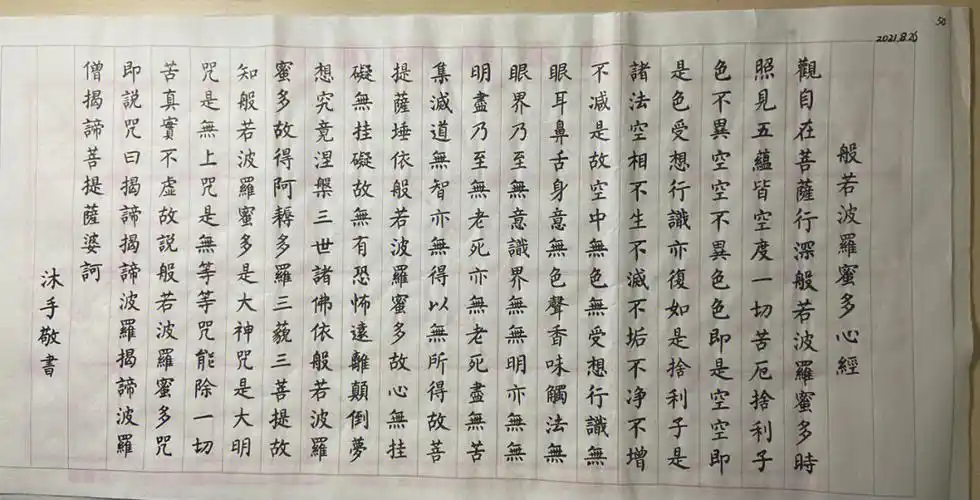 50
2021.8.26
般若波羅蜜多心經
觀自在菩薩行深般若波羅蜜多時
照見五蘊皆空度一切苦厄捨利子
色不異空空不異色色即是空空即
是色受想行識亦復如是捨利子是
諸法空相不生不滅不垢不净不增
不减是故空中無色無受想行識無
眼耳鼻舌身意無色聲香味觸法無
眼界乃至無意識界無無明亦無無
明盡乃至無老死亦無老死盡無苦
集滅道無智亦無得以無所得故菩
提薩埵依般若波羅蜜多故心無挂
礙無挂礙故無有恐怖遠離顛倒夢
想究竟涅槃三世諸佛依般若波羅
蜜多故得阿耨多羅三藐三菩提故
知般若波羅蜜多是大神咒是大明
咒是無上咒是無等等咒能除一切
苦真實不虛故説般若波羅蜜多咒
即説咒曰揭諦揭諦波羅揭諦波羅
僧揭諦菩提薩婆訶
沐手敬書